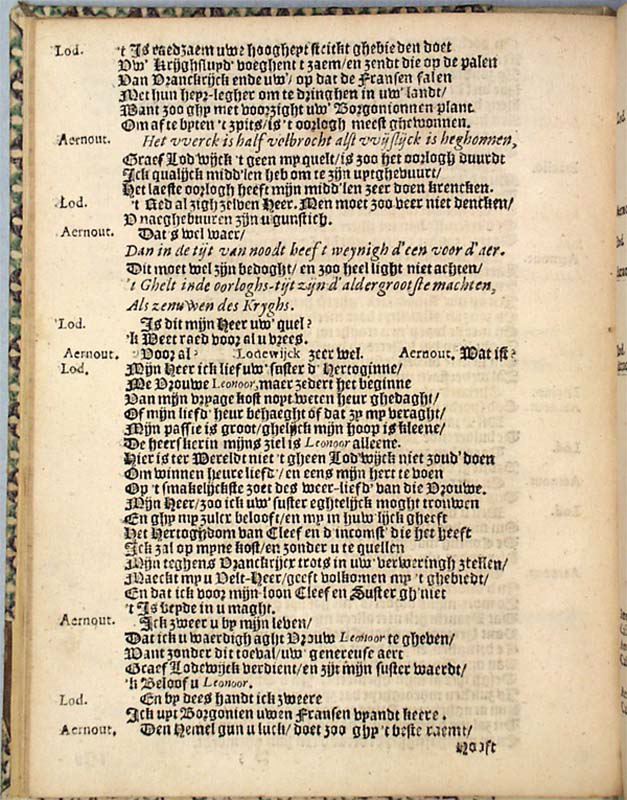 Lod. 't Is raedzaem uwe hoogheyt strickt ghebieden doet
Uw' Krijghsluyd' voeghent t'zaem/ en zendt die op de palen
Van Vranckrijck ende uw'/ op dat de Fransen falen
Met hun heyr-legher om te dringhen in uw' landt/
Want zoo ghy met voorzight uw' Borgonionnen plant.
Om af te byten 't spits/ is 't oorlogh meest ghewonnen.
Aernout. Het vverck is half volbrocht alst vvijslijck is beghonnen,
Graef Lodwijck 't geen my quelt/ is zoo het oorlogh duurdt
Ick qualijck midd'len heb om te zijn uytghevuurt/
Het laeste oorlogh heeft mijn midd'len zeer doen krencken.
Lod. 't Red al zigh zelven Heer. Men moet zoo veer niet dencken/
U naeghebuuren zijn u gunstich.
Aernout. Dat's wel waer/
Dan in de tijt van noodt heeft weynigh d'een voor d'aer.
Dit moet wel zijn bedoght/ en zoo heel light niet achten/
't Ghelt inde oorloghs-tijt zijn d'aldergrootste machten,
Als zenuwen des Kryghs.
Lod. Is dit mijn Heer uw' quel?
'k Weet raed voor al u vrees.
Aernout. Voor al? Lodewijck zeer wel. Aernout. Wat ist?
Lod. Mijn Heer ick lief uw' suster d' Hertoginne/
Me Vrouwe Leonoor, maer zedert het beginne
Van mijn vryage kost noyt weten heur ghedaght/
Of mijn liefd' heur behaeght of dat zy my veraght/
Mijn passie is groot/ ghelijck mijn hoop is kleene/
De heerskerin mijns ziel is Leonoor alleene.
Hier is ter Wereldt niet 't gheen Lod'wijck niet zoud' doen
Om winnen heure liefd'/ en eens mijn hert te voen
Op 't smakelijckste zoet des weer-liefd' van die Vrouwe.
Mijn Heer/ zoo ick uw' suster eghtelijck moght trouwen
En ghy my zulcx belooft/ en my in huw'lijck gheeft
Het Hertoghdom van Cleef en d'incomst' die het heeft
Ick zal op myne kost/ en zonder u te quellen
Mijn teghens Vranckrijcx trots in uw' verweringh stellen/
Maeckt my u Velt-Heer/ geeft volkomen my 't ghebiedt/
En dat ick voor mijn loon Cleef en Suster gh'niet
't Is beyde in u maght.
Aernout. Ick zweer u by mijn leven/
Dat ick u waerdigh aght Vrouw Leonoor te gheven/
Want zonder dit toeval/ uw' genereuse aert
Graef Lodewijck verdient/ en zijt mijn suster waerdt/
'k Beloof u Leonoor.
Lod. En by dees handt ick zweere
Ick uyt Borgonien uwen Fransen vyandt keere.
Aernout. Den Hemel gun u luck/ doet zoo ghy 't beste raemt/
Nooft